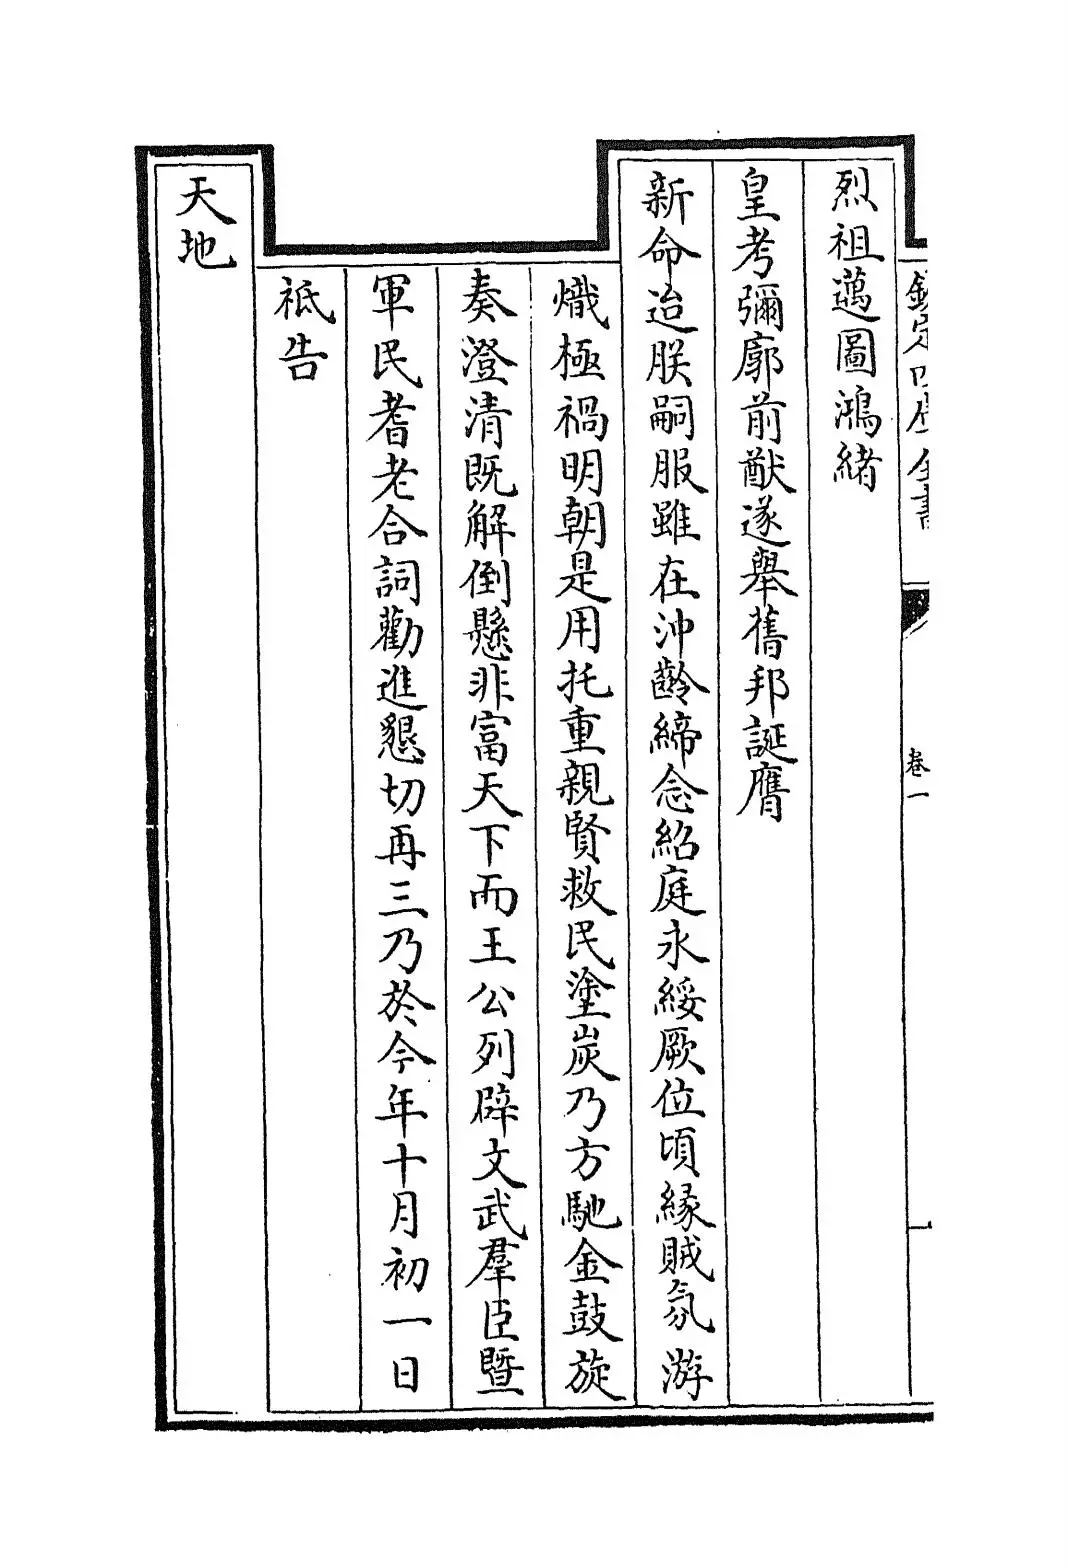 欽定四庫全書
卷一
烈祖邁圖鴻緒
皇考彌廓前猷遂舉舊邦誕膺
新命迨朕嗣服雖在沖齡締念紹庭永綏厥位頃緣賊氛游
熾極禍明朝是用托重親賢救民塗炭乃方馳金鼓旋
奏澄清既解倒懸非富天下而王公列辟文武羣臣暨
軍民耆老合詞勸進懇切再三乃於今年十月初一日
祇告
天地